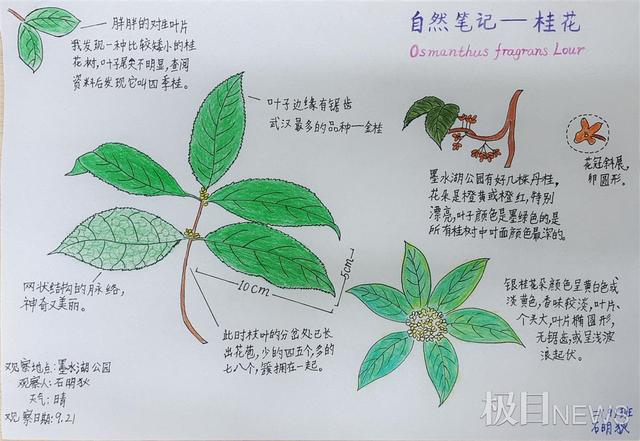 自然笔记—桂花
Osmanthus fragrans Lour
胖胖的对生叶片
我发现一种比较矮小的桂
花树，叶子尾尖不明显，查阅
资料后发现它叫四季桂。
叶子边缘有锯齿
武汉最多的品种—金桂
花冠斜展，
卵圆形。
墨水湖公园有好几株丹桂，
花朵是橙黄或橙红，特别
漂亮，叶子颜色是墨绿色的，是
所有桂树中叶面颜色最深的。
网状结构的脉络，
神奇又美丽。
10cm
5cm
银桂花朵颜色呈黄白色或
淡黄色，香味较淡，叶片
个头大，叶片椭圆形，
无锯齿，或呈浅波
浪起伏。
此时枝叶的分岔处已长
出花苞，少的四五个，多的
七八个，簇拥在一起。
观察地点：墨水湖公园
观察人：石明狄
天气：晴
观察日期：9.21
石明狄
极目NEWS